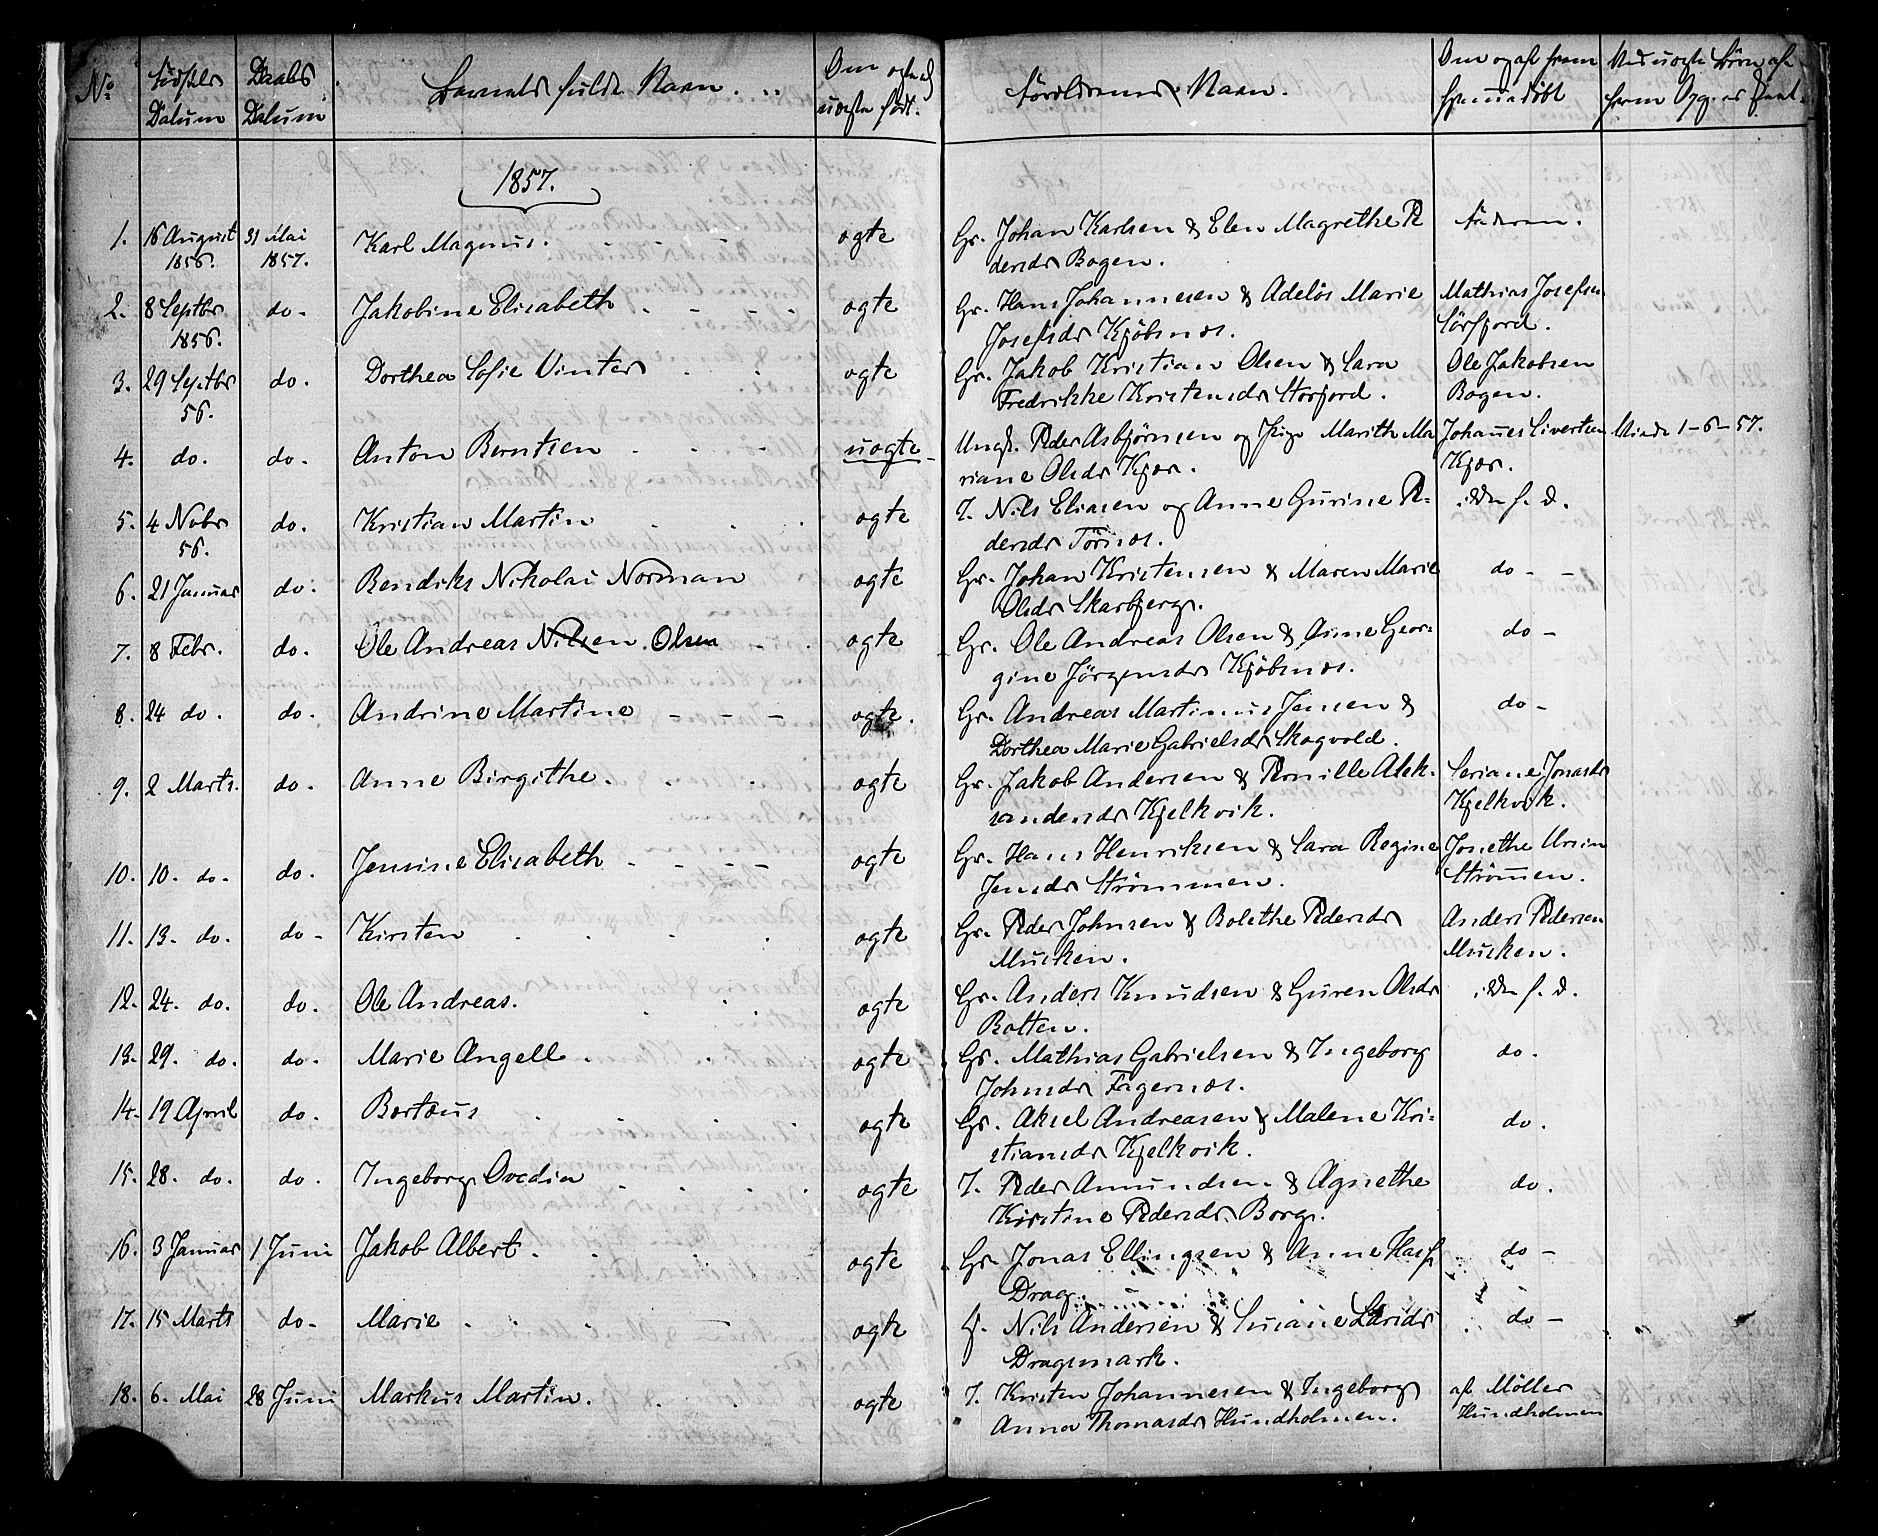 No Fødsels Datum Daabs Datum Barnets fulde Navn. Om ægte el uægte født. Forældrenes Navn. Om og af hvem hjemmedøbt Ved uægte Børn af hvem Opg. er
1857.
1. 16 August 1856. 31 Mai 1857. Karl Magnus. ægte Gr. Johan Karlsen & Elen Magrethe Pe Faderen.
dersdr Bogen.
2. 8 Septbr 1856. do. Jakobine Elisabeth ægte Gr. Hans Johannesen & Adelös Marie Mathias Josefsen
Josefsdr Kjöbsnæs. Sörfjord.
3. 29 Septbr 56. do. Dorthea Sofie Vinter ægte Gr. Jakob Kristian Olsen & Sara Ole Jakobsen
Fredrikke Kristensdr Storfjord. Bogen.
4. do. do. Anton Berntsen uægte Ungk. Peder Asbjörnsen og Pige Marith Ma Johannes Sivertsen 1-6-57.
riane Olsdr Kjær. Kjær.
5. 4 Novbr 56. do. Kristian Martin ægte I. Nils Eliasen og Anne Gurine Pe- ikke h. d.
dersdr Törnæs.
6. 21 Januar do. Bendiks Nikolai Norman ægte Gr. Johan Kristensen & Maren Marie do
Olsdr Skarbjerg.
7. 8 Febr. do. Ole Andreas Nilsen Olsen ægte Gr. Ole Andreas Olsen & Anne Geor- do
gine Jörgensdr Kjöbsnæs.
8. 24 do. do. Andrine Martine ægte. Gr. Andreas Martinus Jensen & do
Dorthea Marie Gabrielsdr Skogvold.
9. 2 Marts. do. Anne Birgithe. ægte Gr. Jakob Andersen & Pernille Alek- Seriane Jonasdr
sandersdr Kjelkvik. Kjelkvik.
10. 10. do. do. Jensine Elisabeth ægte Gr. Hans Henriksen & Sara Regine Josethe Ursin
Jensdr Strömmen. Strömmen.
11. 13. do. do Kirsten ægte Gr. Peder Johnsen & Bolethe Pedersdr Anders Pedersen
Musken. Musken.
12. 24. do. do. Ole Andreas. ægte Gr. Anders Knudsen & Guren Olsdr ikke h. d.
Botten.
13. 29. do. do. Marie Angell ægte Gr. Mathias Gabrielsen & Ingeborg do.
Johnsdr Fagernæs.
14. 19 April do. Bertæus ægte Gr. Aksel Andreasen & Malene Kri- do.
stiansdr Kjelkvik.
15. 28. do. do. Ingeborg Ovedia ægte I. Peder Amundsen & Agnethe do.
Kirstine Pedersdr. Borg.
16. 3 Januar 1 Juni Jakob Albert. ægte Gr. Jonas Ellingsen & Anne do
Drag.
17. 15 Marts do. Marie ægte Nils Andersen & Susane Larsdr do
Dragsmark.
18. 6. Mai 28 Juni Markus Martin. ægte I. Kristen Johannesen & Ingeborg af Möller
Anna Thomasdr Hundholmen. Hundholmen